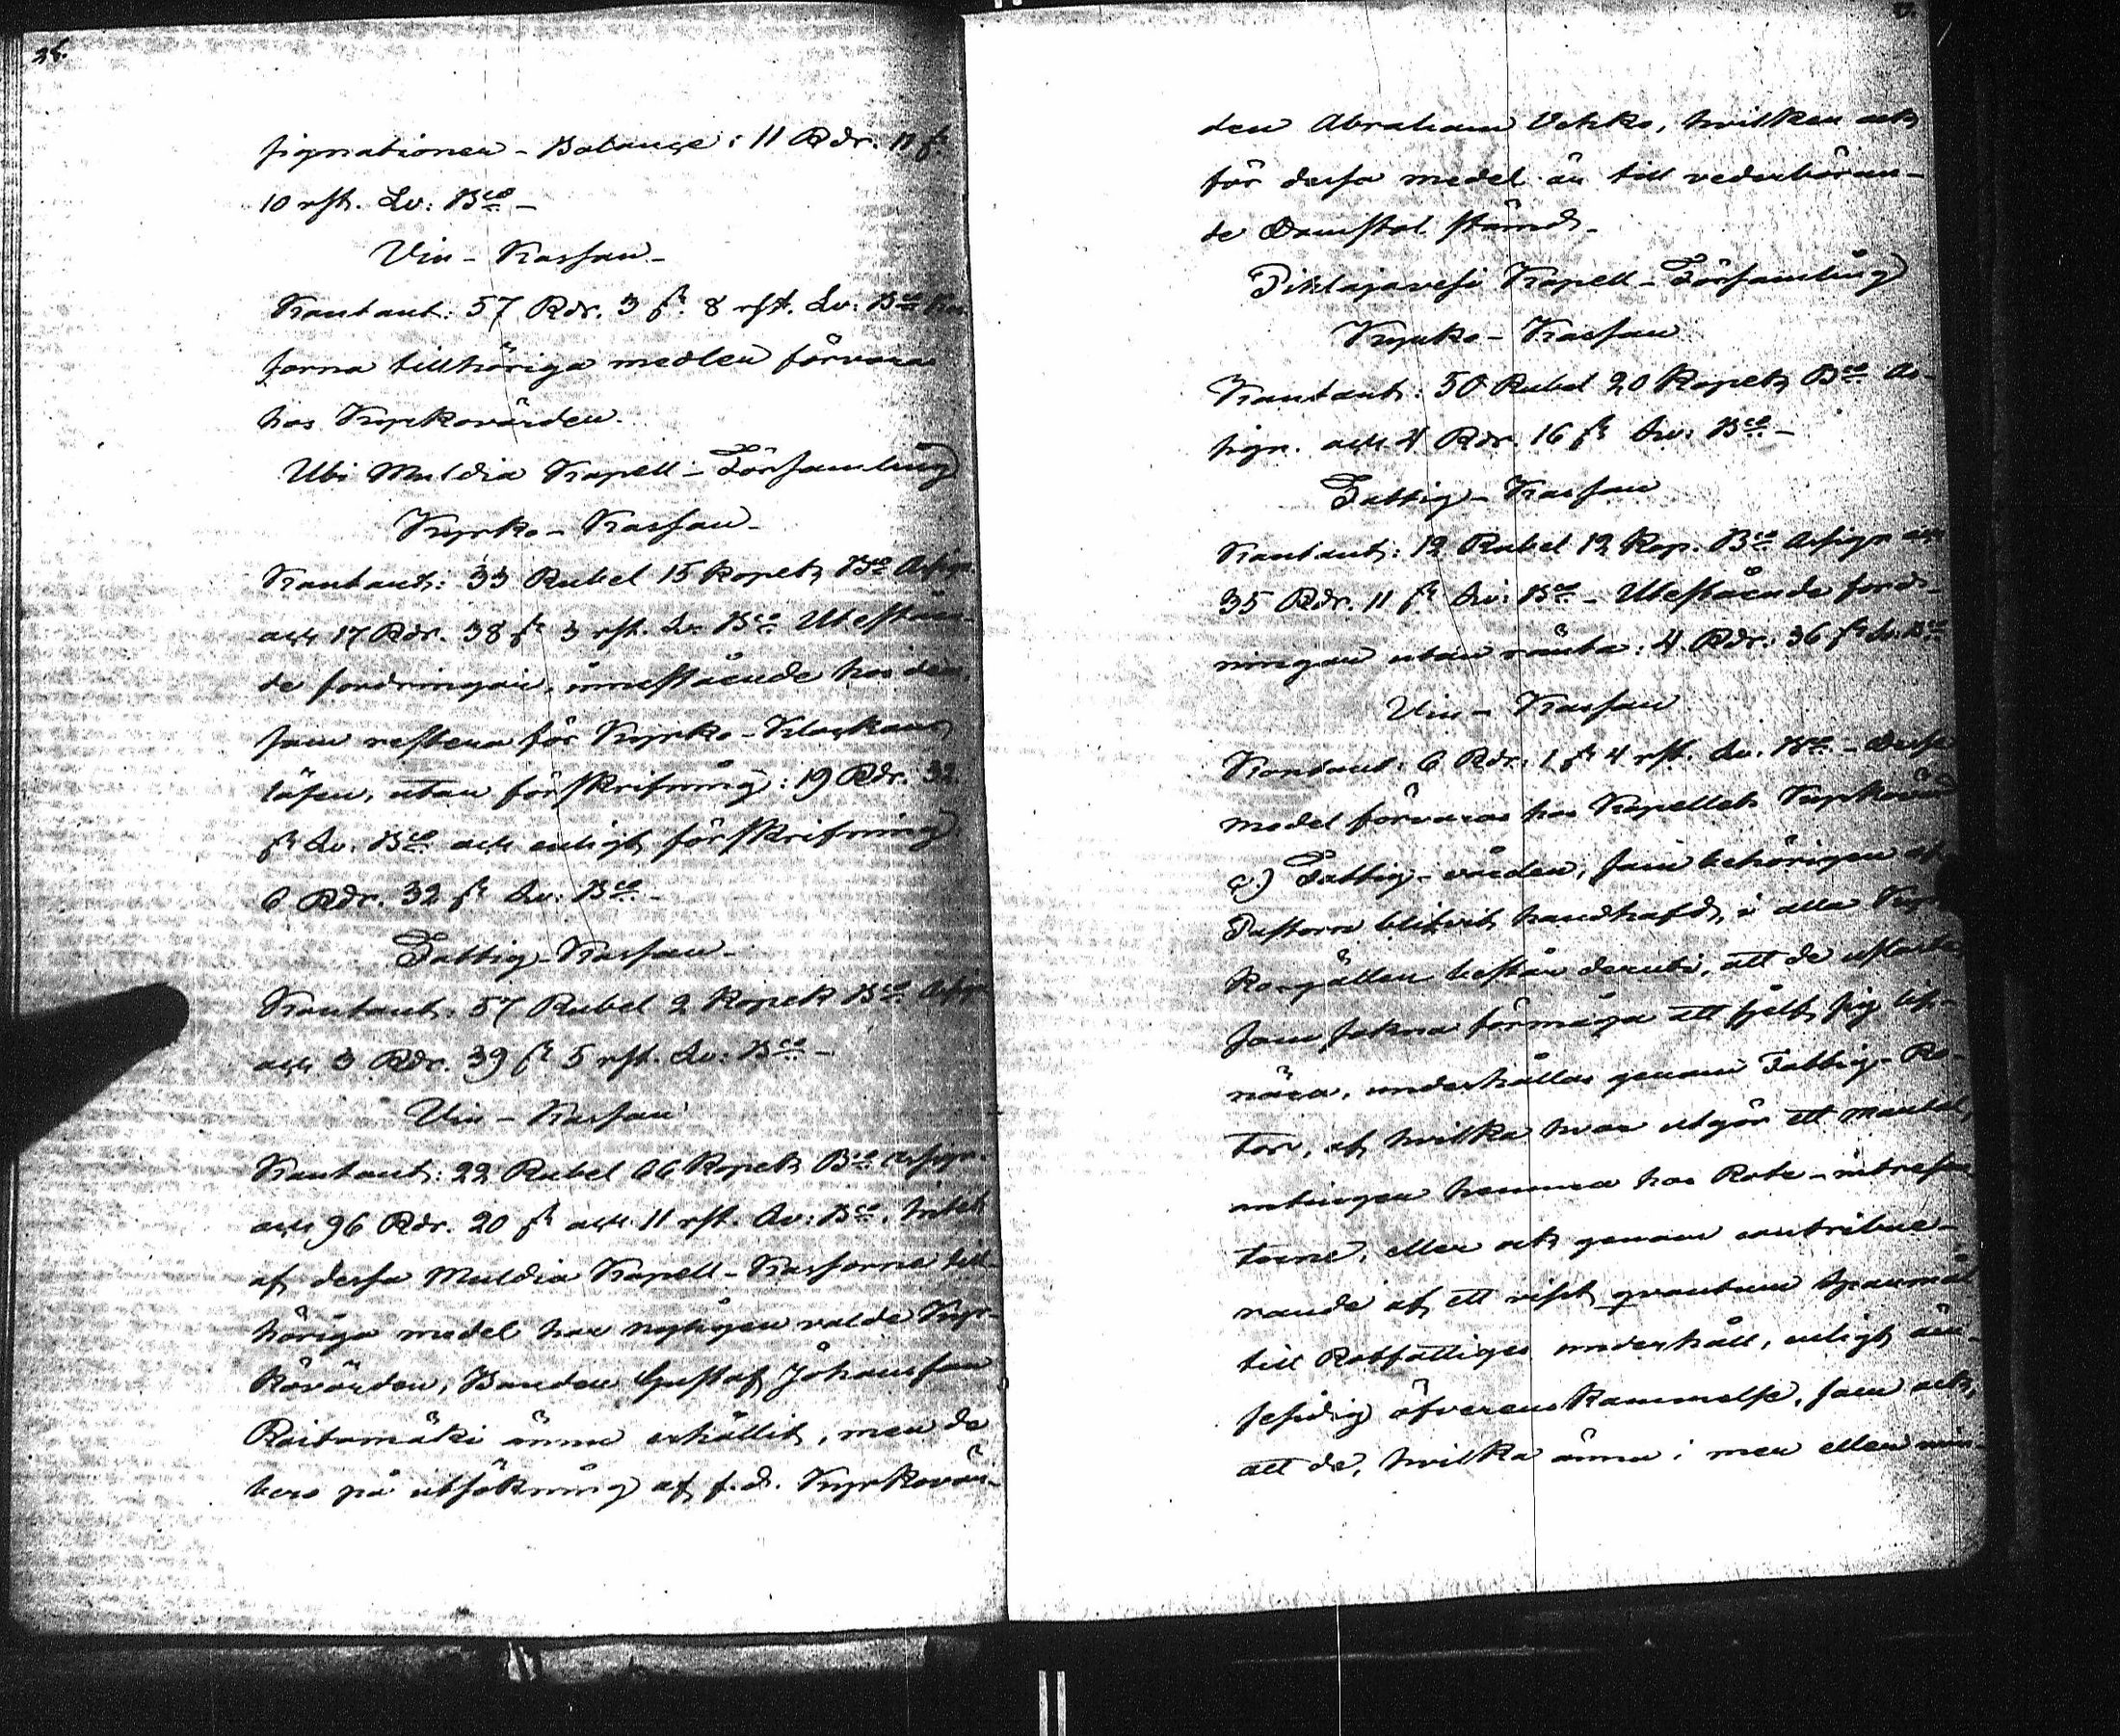 signationer - Balance: 11 Rdr. 11 sk
10 rst. Sv: Bco -
Vin - Kassan -
Kontant: 57 Rdr. 3 sk. 8 rst. Sv: Bco Kas
sorna tillhöriga medlen förvaras
hos Kyrkovärden.
Ubi Muldia Kapell - Församling
Kyrko - Kassan -
Kontant: 33 Rubel 15 kopek Bco Assign.
och 17 Rdr. 38 sk 3 rst. Sv: Bco Utestående-
de fordringar, innestående hos dem,
som restera för Kyrko - Klockans
lösen, utan förskrifning: 19 Rdr. 32
sk Sv. Bco och enligt förskrifning
6 Rdr. 32 sk Sv: Bco -
Fattig - Kassan -
Kontant: 57 Rubel 2 Kopek Bco Assign
och 3 Rdr. 39 sk 5 rst. Sv: Bco -
Vin - Kassan
Kontant: 22 Rubel 06 Kopek Bco Assign.
och 96 Rdr. 20 sk och 11 rst. Sv: Bco. Intet
af dessa Muldia Kapell - Kassorna till-
höriga medel har nyligen valde Kyr-
kovärden, Bonden Gustaf Johansson
Raitamäki ännu erhållit, men de
bero på utsökning af f.d. Kyrkovär-
den Abraham Vehko, hvilken ock
för dessa medel är till vederböran-
de Domstol stämd -
Pihlajavesi Kapell - Församling
Kyrko - Kassan
Kontant: 50 Rubel 20 Kopek Bco As-
sign. och 4 Rdr. 16 sk Sv: Bco -
Fattig - Kassan
Kontant: 12 Rubel 12 Kop. Bco Assign och
35 Rdr. 11 sk Sv: Bco - Utestående ford-
ringar utan ränta: 4 Rdr: 36 sk Sv: Bco
Vin - Kassan
Kontant: 6 Rdr: 1 sk 4 rst. Sv. Bco - Dessa
medel förvaras hos Kapellets Kyrkovärd
Fattig - vården, som behörigen af
Pastorn blifvit handhafd, i alla Kyr
kogällen består deruti, att de usslaste
som sakna förmåga att sjelf sig lif-
nära, underhållas genom Fattig - Ro-
tor, af hvilka hvar utgör ett mantal,
antingen hemma hos Rote - intressen
terne, eller ock genom contribue-
rande af ett visst quantum spanmål
till Rotfattiges underhåll, enligt öm-
sesidig öfverenskommelse, som ock,
att de, hvilka ännu i mer eller min-